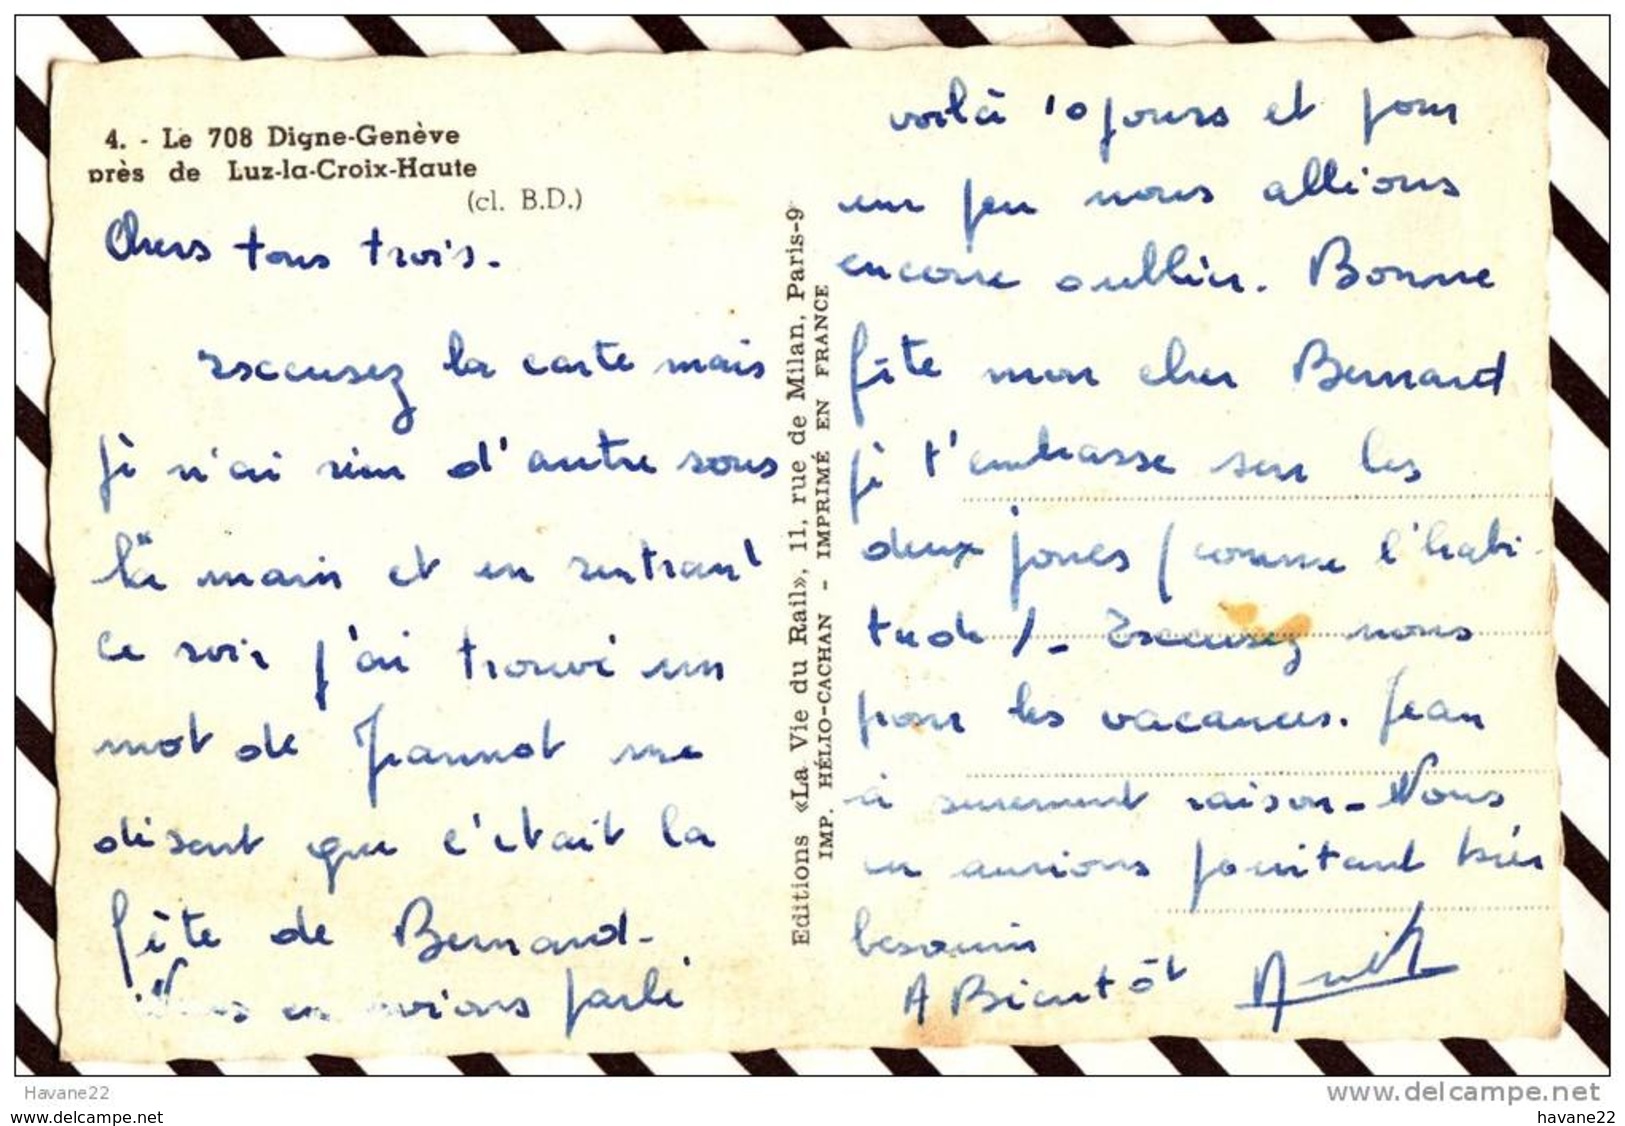 4. - Le 708 Digne-Genève
près de Luz-la-Croix-Haute
(cl. B.D.)
Chers tous trois.
Excusez la carte mais
je n'ai rien d'autre sous
la main et en rentrant
ce soir j'ai trouvé un
mot de Jeannot me
disant que c'était la
fête de Bernard.
Nous en avions parlé
Editions «La Vie du Rail», 11, rue de Milan, Paris-9
IMP. HÉLIO-CACHAN - IMPRIMÉ EN FRANCE
voilà 10 jours et pour
un peu nous allions
encore oublier. Bonne
fête mon cher Bernard
je t'embrasse sur les
deux joues (comme l'habi-
tude). Excusez nous
pour les vacances. Jean
a surement raison - Nous
en aurions pourtant bien
besoin
A Bientôt
Havane22
www.delcampe.net
havane22
havane22